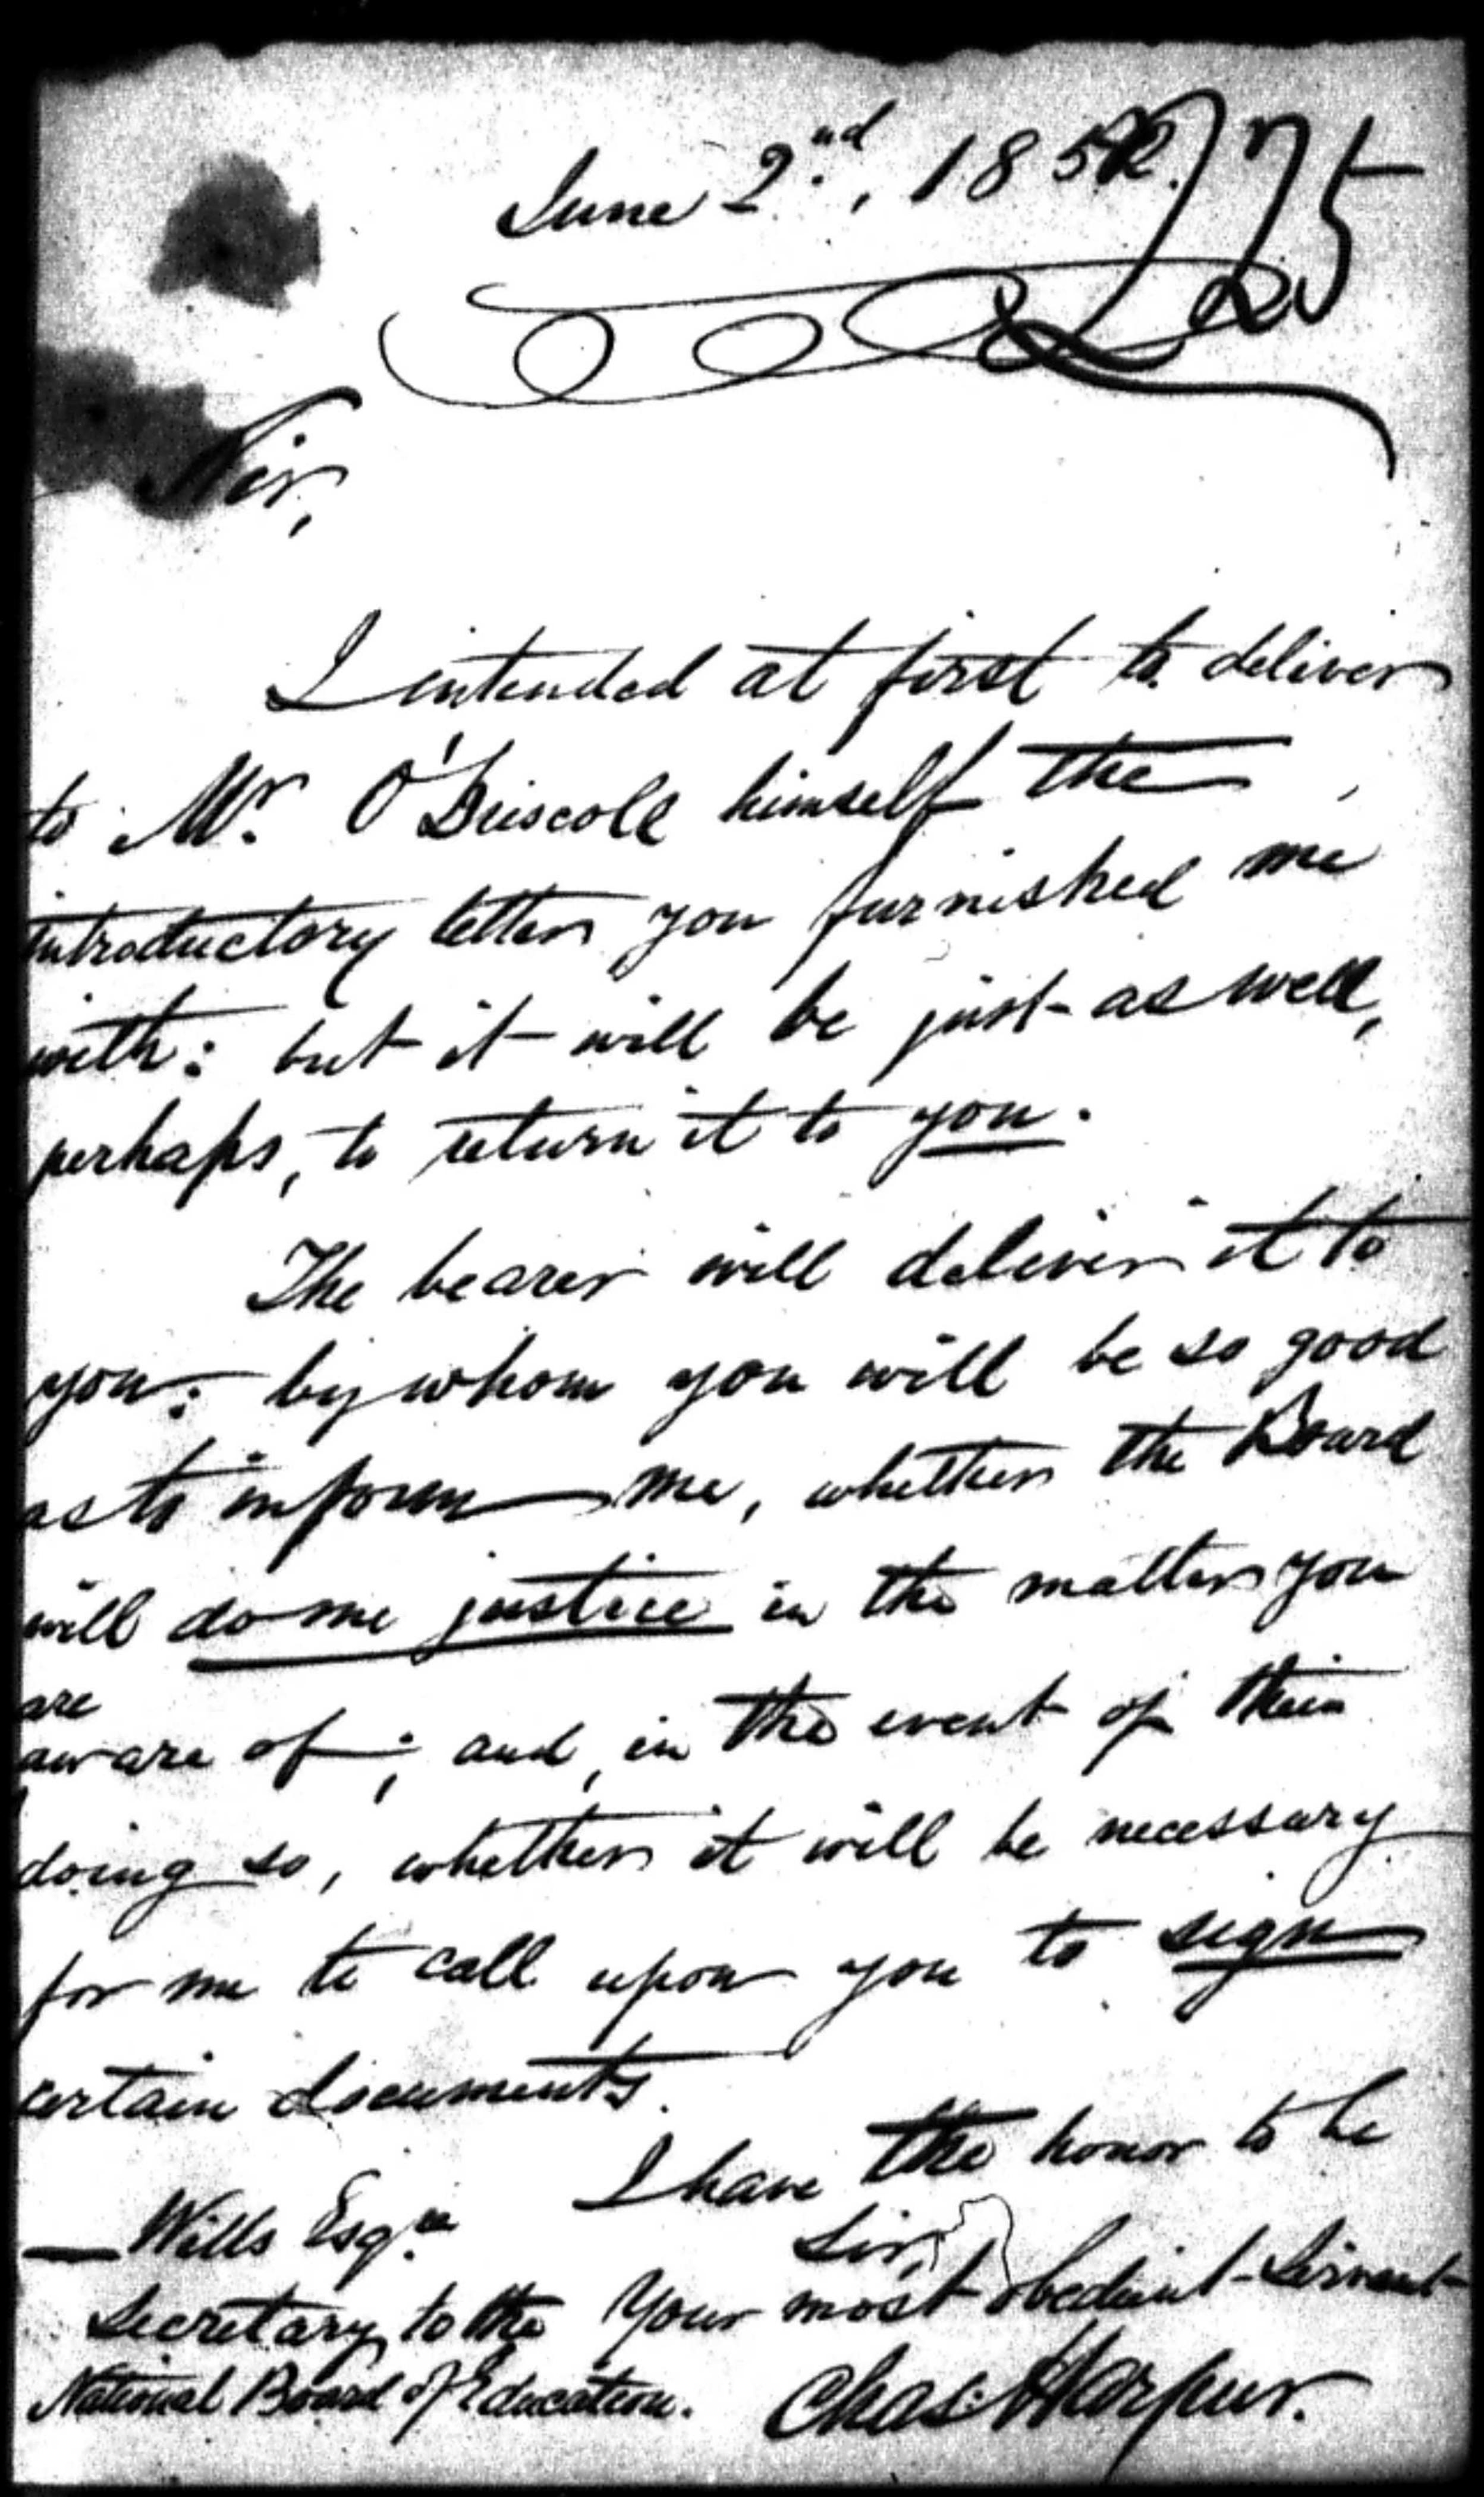 June 2nd, 1852.
225
Sir,
I intended at first to deliver
to Mr. O'Driscoll himself the
introductory letter you furnished me
with: but it will be just as well,
perhaps, to return it to you.
The bearer will deliver it to
you: by whom you will be so good
as to inform me, whether the Board
will do me justice in the matter you
are
aware of; and, in the event of their
doing so, whether it will be necessary
for me to call upon you to sign
certain documents.
I have the honor to be
Sir,
Your most obedient Servant
Chas. Harpur.
— Wills Esqre.
Secretary to the
National Board of Education.